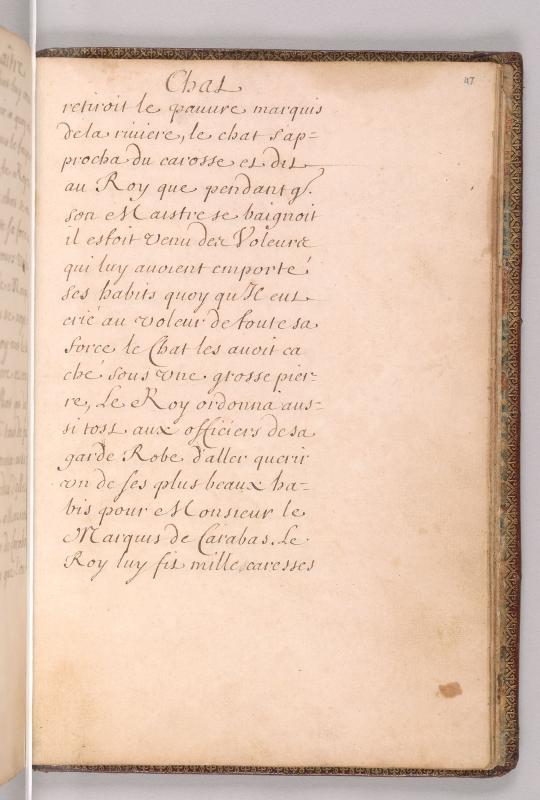 Chat
47
retiroit le pauure marquis
dela riviere, le chat s'ap=
procha du carosse et dit
au Roy que pendant q.
son Maistre se baignoit
il estoit venu des Voleurs
qui luy auoient emporté
ses habits quoy qu'Il eut
crié au voleur de toute sa
force le Chat les auoit ca
ché sous vne grosse pier=
re, Le Roy ordonna aus=
si tost aux officiers de sa
garde Robe d'aller querir
vn de ses plus beaux ha=
bis pour Monsieur le
Marquis de Carabas. Le
Roy luy fit mille caresses